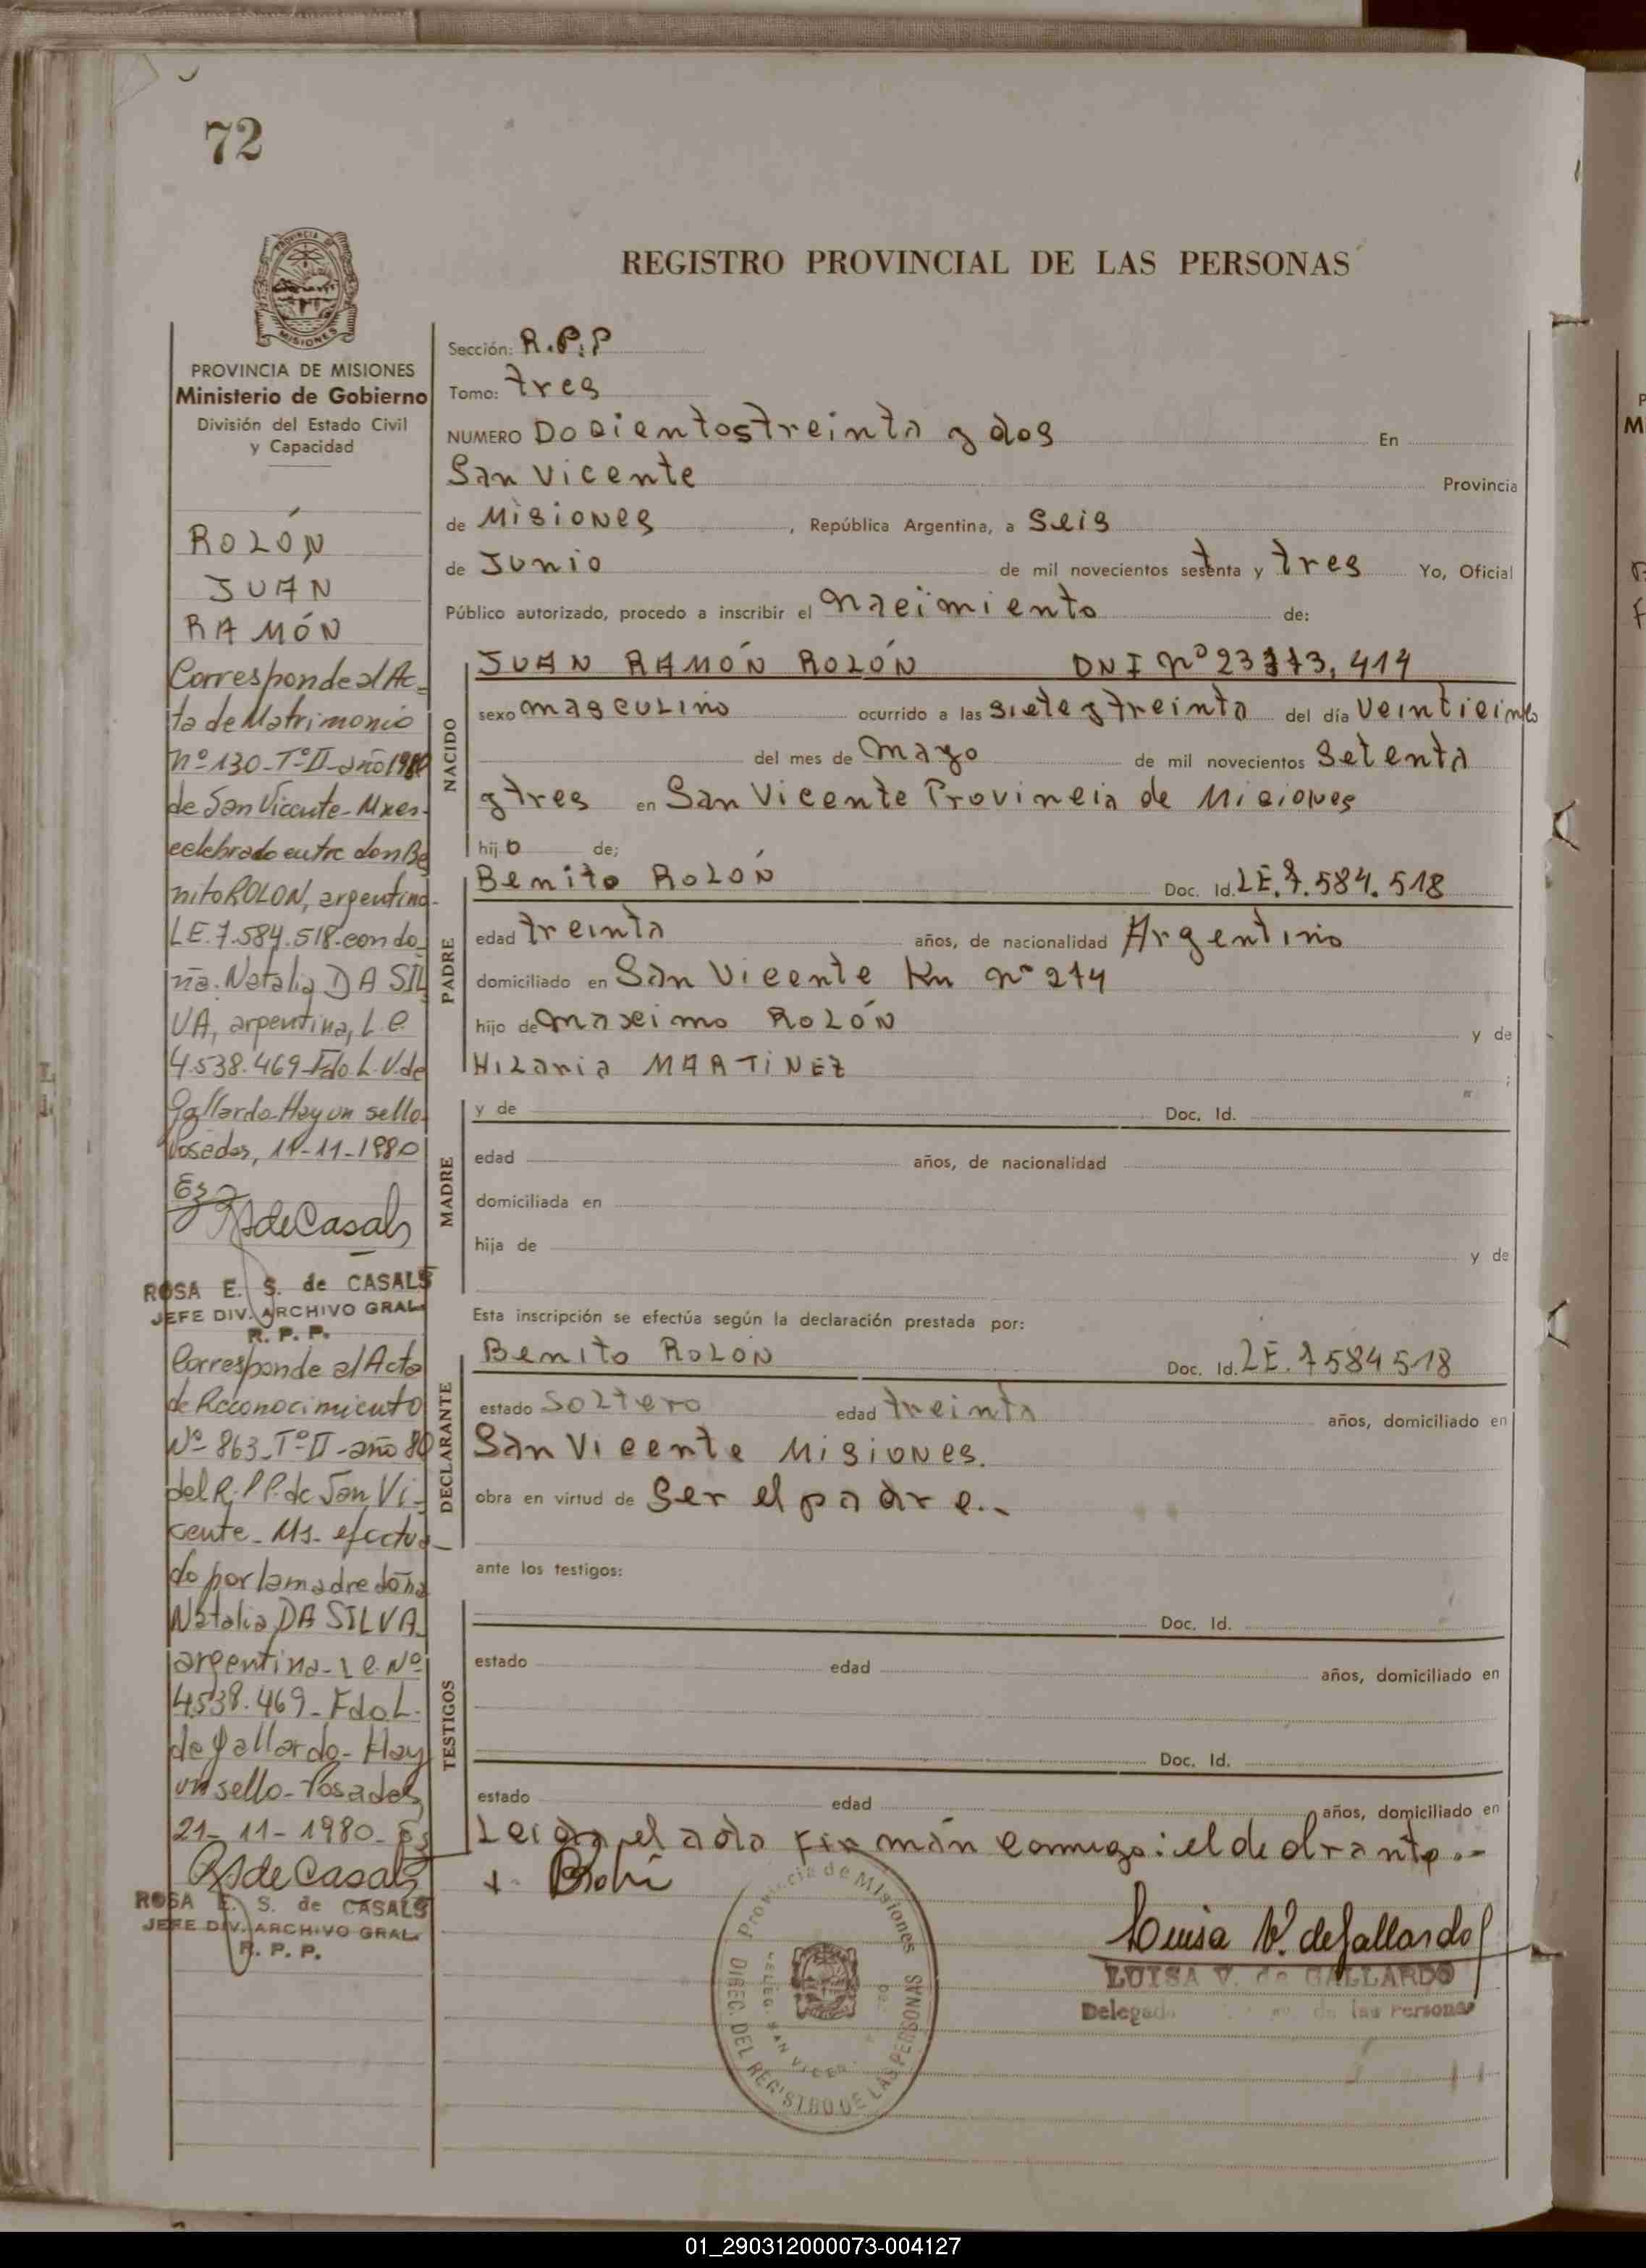 72
PROVINCIA DE
MISIONES
REGISTRO PROVINCIAL DE LAS PERSONAS
PROVINCIA DE MISIONES
Ministerio de Gobierno
División del Estado Civil
y Capacidad
ROLÓN
JUAN
RAMÓN
Corresponde al Ac-
ta de Matrimonio
Nº 130-TºII-año 1980
de San Vicente-Mnes-
celebrado entre don Be
nito ROLON, argentino-
LE.7.584.518-con do-
ña. Natalia DA SIL
VA, argentina, L.e.
4.538.469-Fdo L.V.de
Gallardo-Hay un sello-
Posadas, 11-11-1980
Es
RSdeCasals
ROSA E. S. de CASALS
JEFE DIV. ARCHIVO GRAL.
R. P. P.
Corresponde al Acta
de Reconocimiento
Nº 863-TºII-año 80
del R.P.P. de San Vi-
cente-Ms-efectua-
do por la madre doña
Natalia DA SILVA
argentina-L e. Nº
4538.469-Fdo L.
de Gallardo-Hay
un sello-Posadas
21-11-1980-Es
RSdeCasals
ROSA E. S. de CASALS
JEFE DIV. ARCHIVO GRAL.
R. P. P.
Sección: R.P.P
Tomo: tres
NUMERO Docientostreinta y dos En
San Vicente Provincia
de Misiones , República Argentina, a Seis
de Junio de mil novecientos setenta y tres Yo, Oficial
Público autorizado, procedo a inscribir el nacimiento de:
NACIDO
JUAN RAMÓN ROLÓN DNI Nº 414
sexo masculino ocurrido a las siete y treinta del día Veinticinco
del mes de mayo de mil novecientos Setenta
y tres en San Vicente Provincia de Misiones
hijo de;
PADRE
Benito ROLÓN Doc. Id. LE.7.584.518
edad treinta años, de nacionalidad Argentino
domiciliado en San Vicente Km nº 274
hijo de maximo ROLÓN y de
HiLaria MARTINEZ
MADRE
y de Doc. Id.
edad años, de nacionalidad
domiciliada en
hija de y de
Esta inscripción se efectúa según la declaración prestada por:
DECLARANTE
Benito ROLÓN Doc. Id. LE.7584518
estado soltero edad treinta años, domiciliado en
San Vicente Misiones.
obra en virtud de Ser el padre..
ante los testigos:
TESTIGOS
Doc. Id.
estado edad años, domiciliado en
Doc. Id.
estado edad años, domiciliado en
Leida el acta firman conmigo: el
Provincia de Misiones
DIREC. DEL REGISTRO DE LAS PERSONAS
Luisa V. de Gallardo
LUISA V. de GALLARDO
Delegada de las Personas
01_290312000073-004127